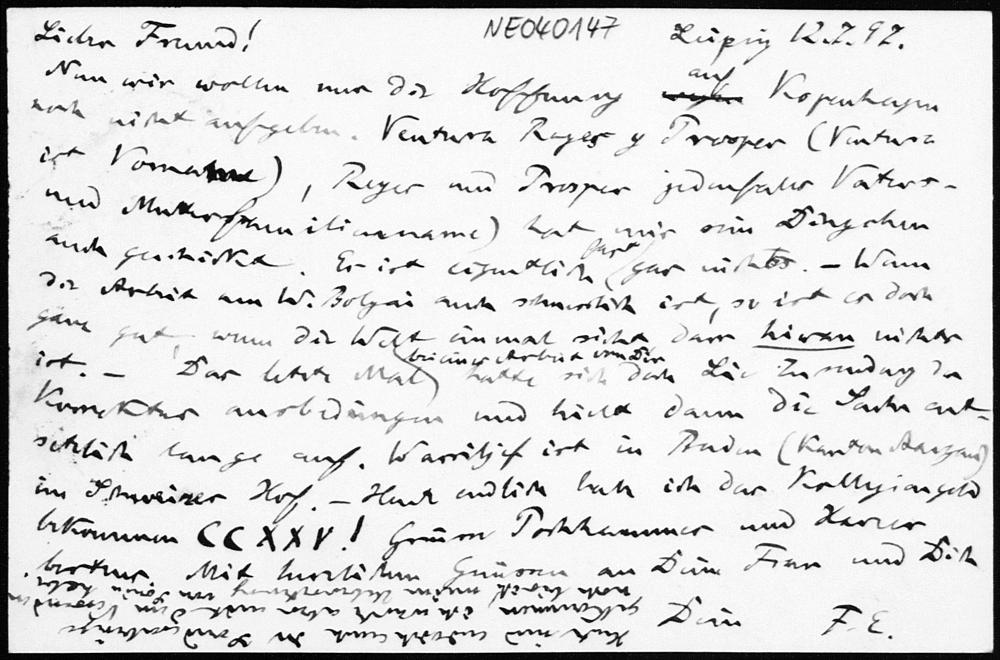 NEO40147
Lieber Freund! Leipzig 12.7.97.
Nun wir wollen nur die Hoffnung auf Kopenhagen
noch nicht aufgeben. Ventura Reyes y Prosper (Ventura
ist Vorname), Reyes und Prosper jedenfalls Vaters-
und Mutterfamilienname) hat mir sein Dingchen
auch geschickt. Es ist eigentlich fast gar nichts. – Wenn
die Arbeit am W. Bolyai auch schauerlich ist, so ist es doch
ganz gut, wenn die Welt einmal sieht dass hieran nichts
ist. – Das letzte Mal (bei einer Arbeit von Dir) hatte sich doch Lie Zusendung der
Korrektur ausbedungen und hielt dann die Sache ent-
setzlich lange auf. Wassiljef ist in Baden (Kanton Aargau)
im Schweizer Hof. – Heute endlich habe ich das Kollegiengeld
bekommen CCXXV! Grüsse Pochhammer und Harzer
bestens. Mit herzlichen Grüssen an Deine Frau und Dich
Dein F. E.
Heute sind endlich auch die
gekommen, ich
noch